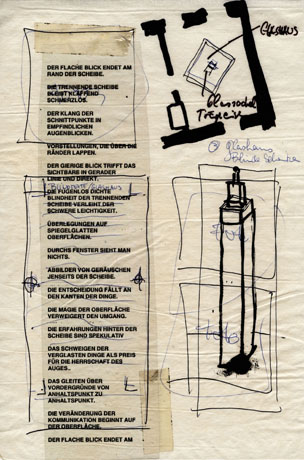 DER FLACHE BLICK ENDET AM
RAND DER SCHEIBE.
DIE TRENNENDE SCHEIBE
BLEIBT KLAFFEND
SCHMERZLOS.
DER KLANG DER
SCHNITTPUNKTE IN
EMPFINDLICHEN
AUGENBLICKEN.
VORSTELLUNGEN, DIE ÜBER DIE
RÄNDER LAPPEN.
DER GIERIGE BLICK TRIFFT DAS
SICHTBARE IN GERADER
LINIE UND DIREKT.
DIE FUGENLOS DICHTE
BLINDHEIT DER TRENNENDEN
SCHEIBE VERLEIHT DER
SCHWERE LEICHTIGKEIT.
ÜBERLEGUNGEN AUF
SPIEGELGLATTEN
OBERFLÄCHEN.
DURCHS FENSTER SIEHT MAN
NICHTS.
ABBILDER VON GERÄUSCHEN
JENSEITS DER SCHEIBE.
DIE ENTSCHEIDUNG FÄLLT AN
DEN KANTEN DER DINGE.
DIE MAGIE DER OBERFLÄCHE
VERWEIGERT DEN UMGANG.
DIE ERFAHRUNGEN HINTER DER
SCHEIBE SIND SPEKULATIV
DAS SCHWEIGEN DER
VERGLASTEN DINGE ALS PREIS
FÜR DIE HERRSCHAFT DES
AUGES.
DAS GLEITEN ÜBER
VORDERGRÜNDE VON
ANHALTSPUNKT ZU
ANHALTSPUNKT.
DIE VERÄNDERUNG DER
KOMMUNIKATION BEGINNT AUF
DER OBERFLÄCHE.
DER FLACHE BLICK ENDET AM
GLASHAUS
Glassockel
Glashaus